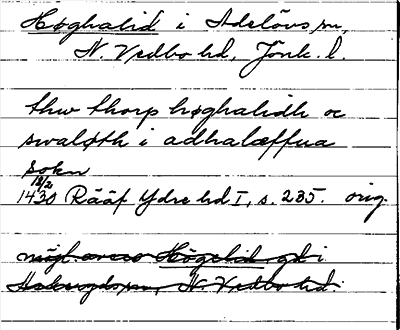 Høghalid i Adelövs sn,
N. Vedbo hd, Jönk. l.
thw thorp høghalidh oc
swaløth i adhalæffua
sokn
12/2
1430 Rääf Ydre hd I, s. 235. orig.
möjl. avses Högelid gd i
N. Vedbo hd.